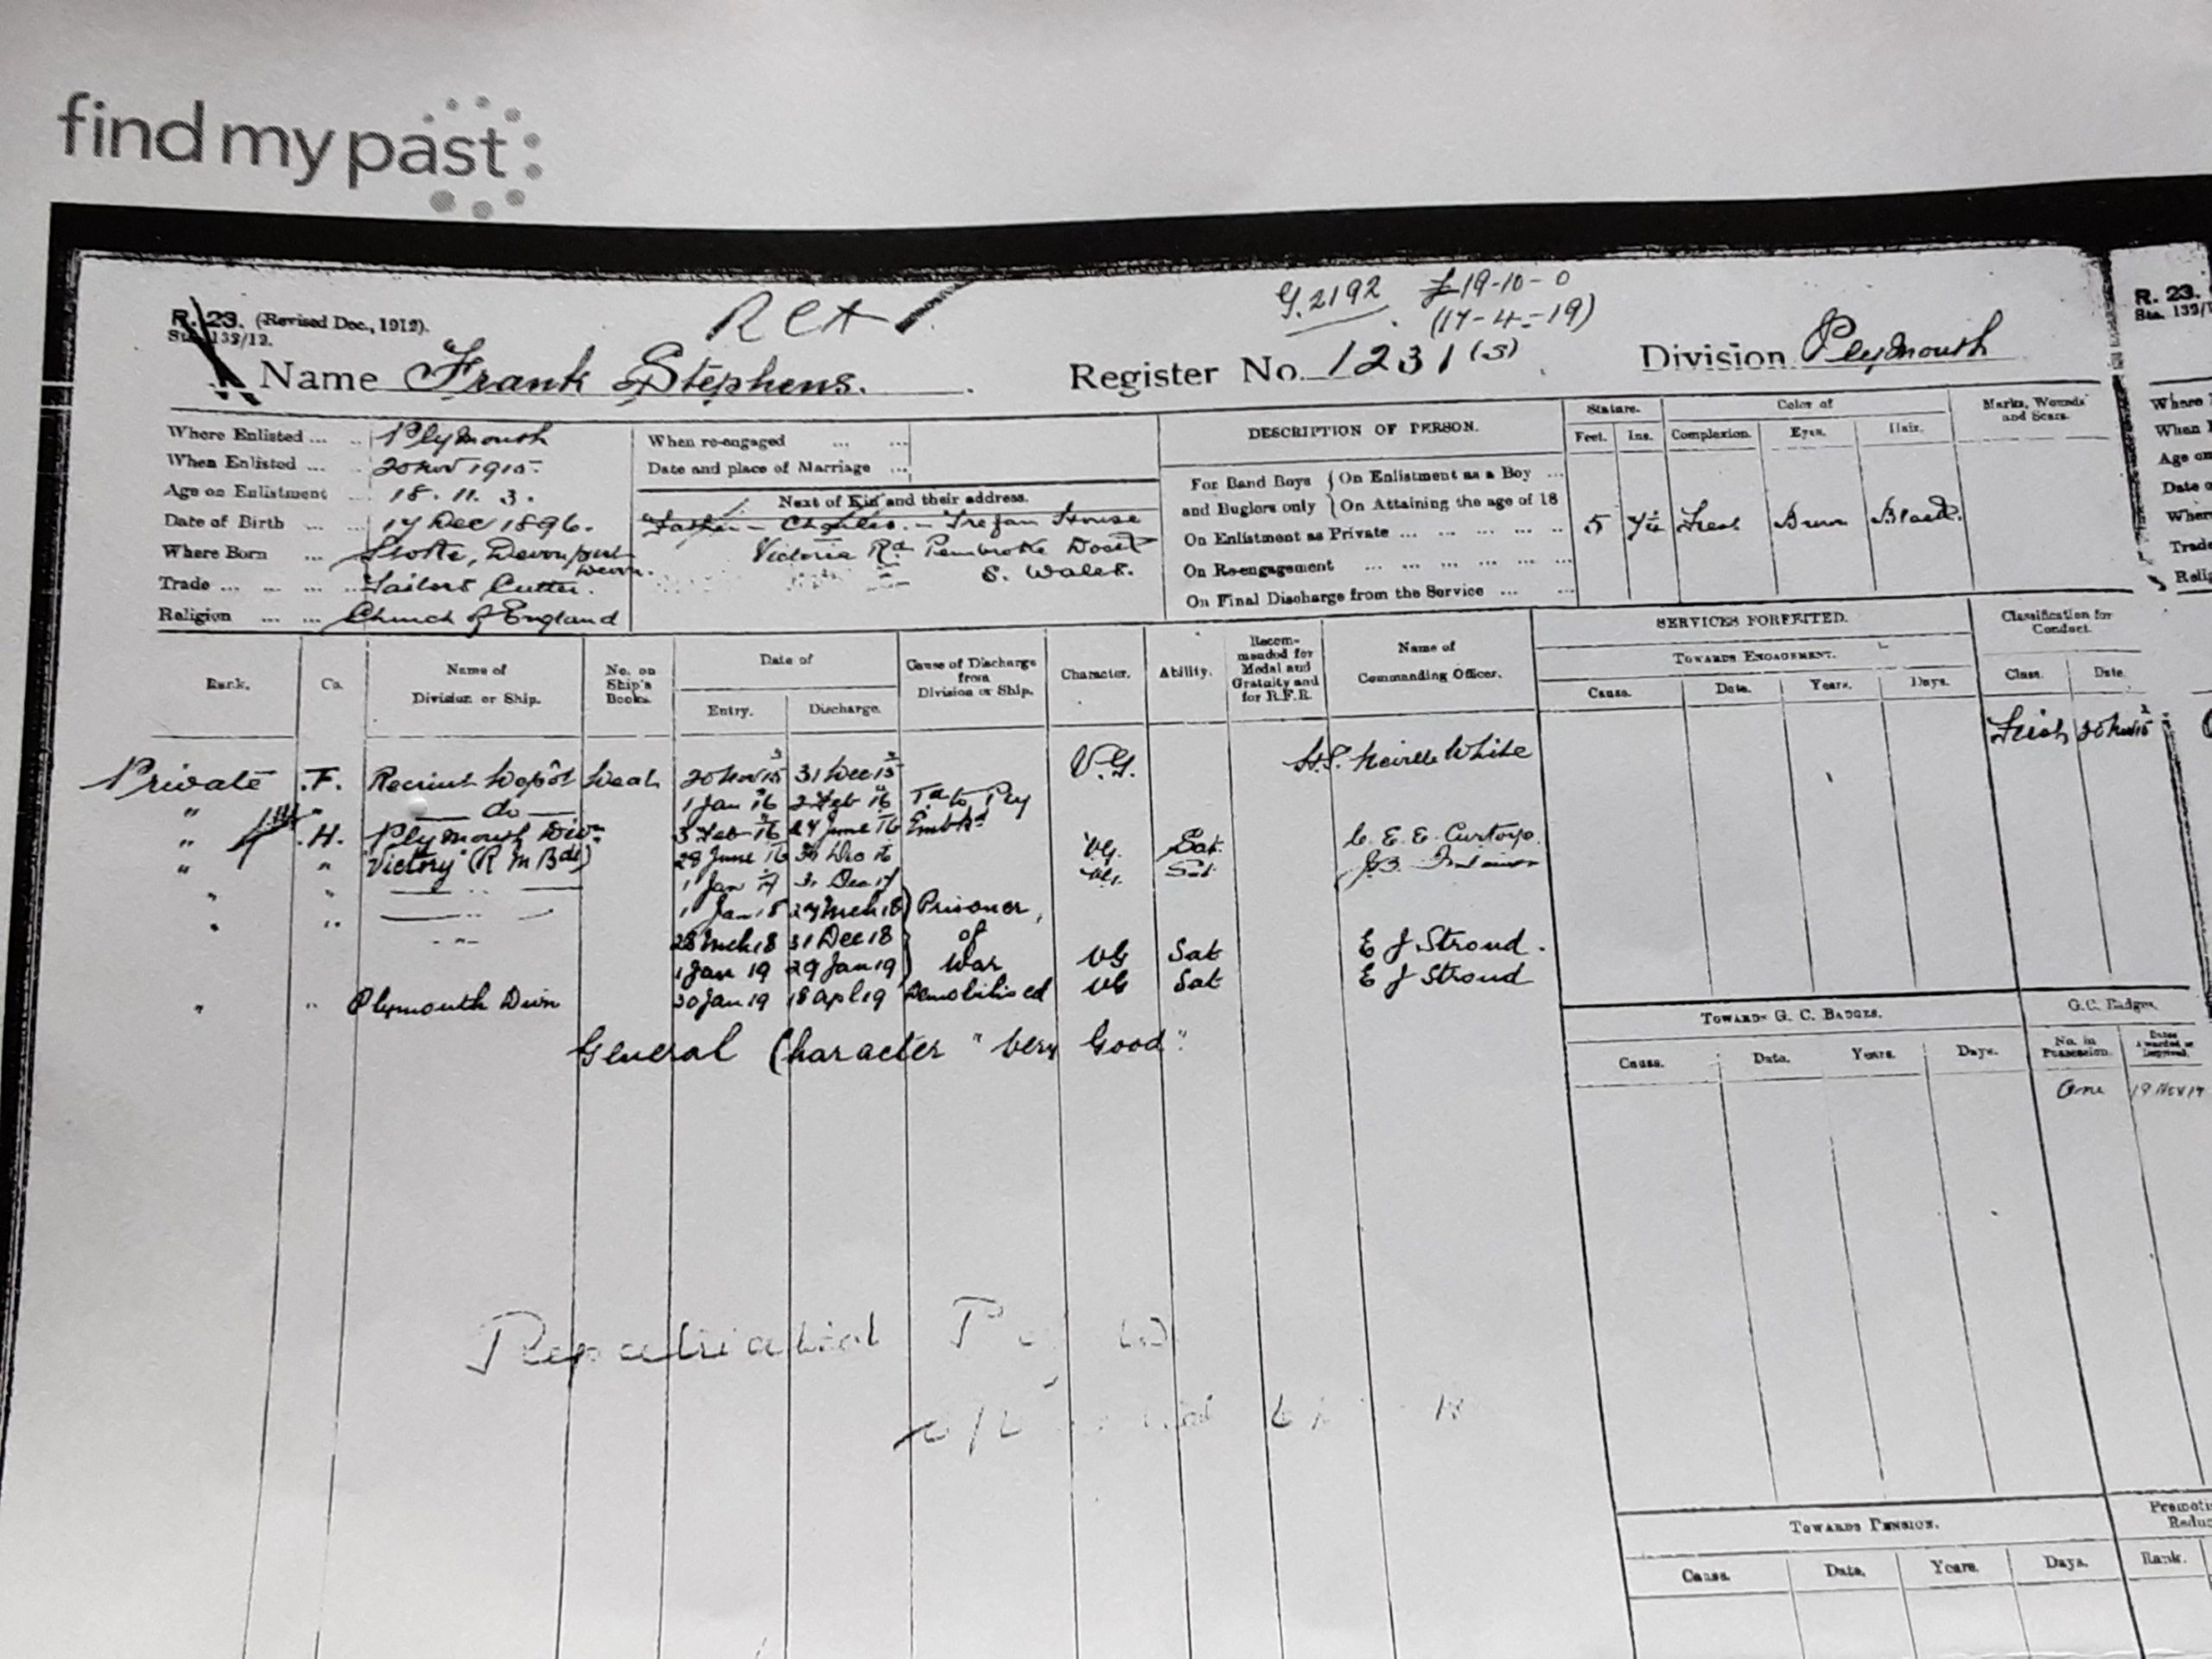 find my past
R. 23. (Revised Dec., 1912).
Sta. 139/12.
G.2192 £19-10-0
(17-4-19)
Name Frank Stephens.
Register No. 1231 (S)
Division Plymouth
Where Enlisted ... Plymouth
When Enlisted ... 20 Nov 1915.
Age on Enlistment 18. 11. 3.
Date of Birth ... 17 Dec 1896.
Where Born ... Stoke, Devonport
Devon.
Trade ... Tailors Cutter.
Religion ... Church of England
When re-engaged ...
Date and place of Marriage ...
Next of Kin and their address.
Father - Charles. - House
Victoria Rd Pembroke Dock
S. Wales.
DESCRIPTION OF PERSON.
Stature. Color of Marks, Wounds and Scars.
Feet. Ins. Complexion. Eyes. Hair.
For Band Boys and Buglers only
On Enlistment as a Boy ...
On Attaining the age of 18
On Enlistment as Private ... 5 Fresh Brown Black.
On Re-engagement ...
On Final Discharge from the Service ...
Rank. Co. Name of Division or Ship. No. on Ship's Books. Date of Entry. Discharge. Cause of Discharge from Division or Ship. Character. Ability. Recommended for Medal and Gratuity and for R.F.R. Name of Commanding Officer.
Private F. Recruit Depôt Deal 20 Nov 15 31 Dec 15 V.G. Neville White
" " do 1 Jan 16 2 Feb 16 To Ply
" H. Plymouth Divn 3 Feb 16 27 June 16 Embkd
" " "Victory" (R M Bde) 28 June 16 31 Dec 16 VG. Sat.
" " 1 Jan 17 31 Dec 17 VG. Sat.
" " 1 Jan 18 27 Mch 18 Prisoner
28 Mch 18 31 Dec 18 of VG Sat E J Stroud.
1 Jan 19 29 Jan 19 War VG Sat E J Stroud
" " Plymouth Divn 30 Jan 19 18 Apl 19 Demobilised
General Character "Very Good".
Repatriated P W
SERVICES FORFEITED.
TOWARDS ENGAGEMENT.
Cause. Date. Years. Days.
Classification for Conduct.
Class. Date.
TOWARDS G. C. BADGES.
Cause. Date. Years. Days.
G.C. Badges.
No. in Possession.
One 19 Nov 17
TOWARDS PENSION.
Cause. Date. Years. Days.
Rank.
R. 23.